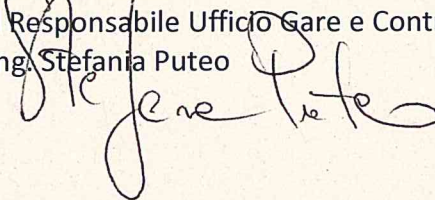 Responsabile Ufficio Gare e Cont
ng. Stefania Puteo
Stefania Puteo